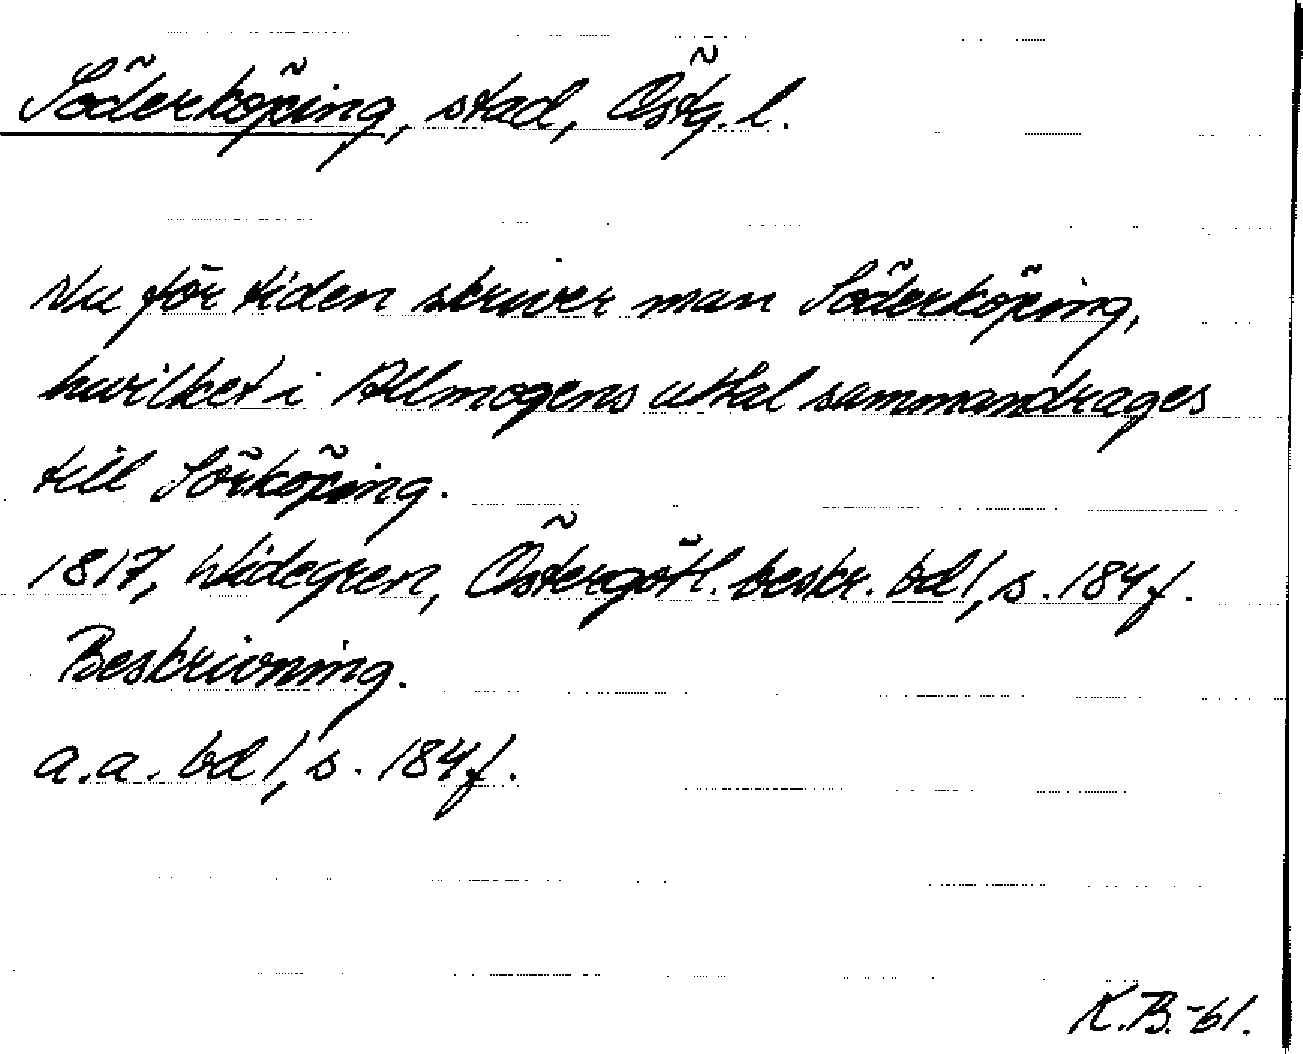 Söderköping, stad, Östg. l.
Nu för tiden skriver man Söderköping,
hvilket i Allmogens uttal sammandrages
till Sörköping.
1817, Widegren, Östergötl. beskr. bd 1, s. 184 f.
Beskrivning.
a.a. bd 1, s. 184 f.
K.B.-61.